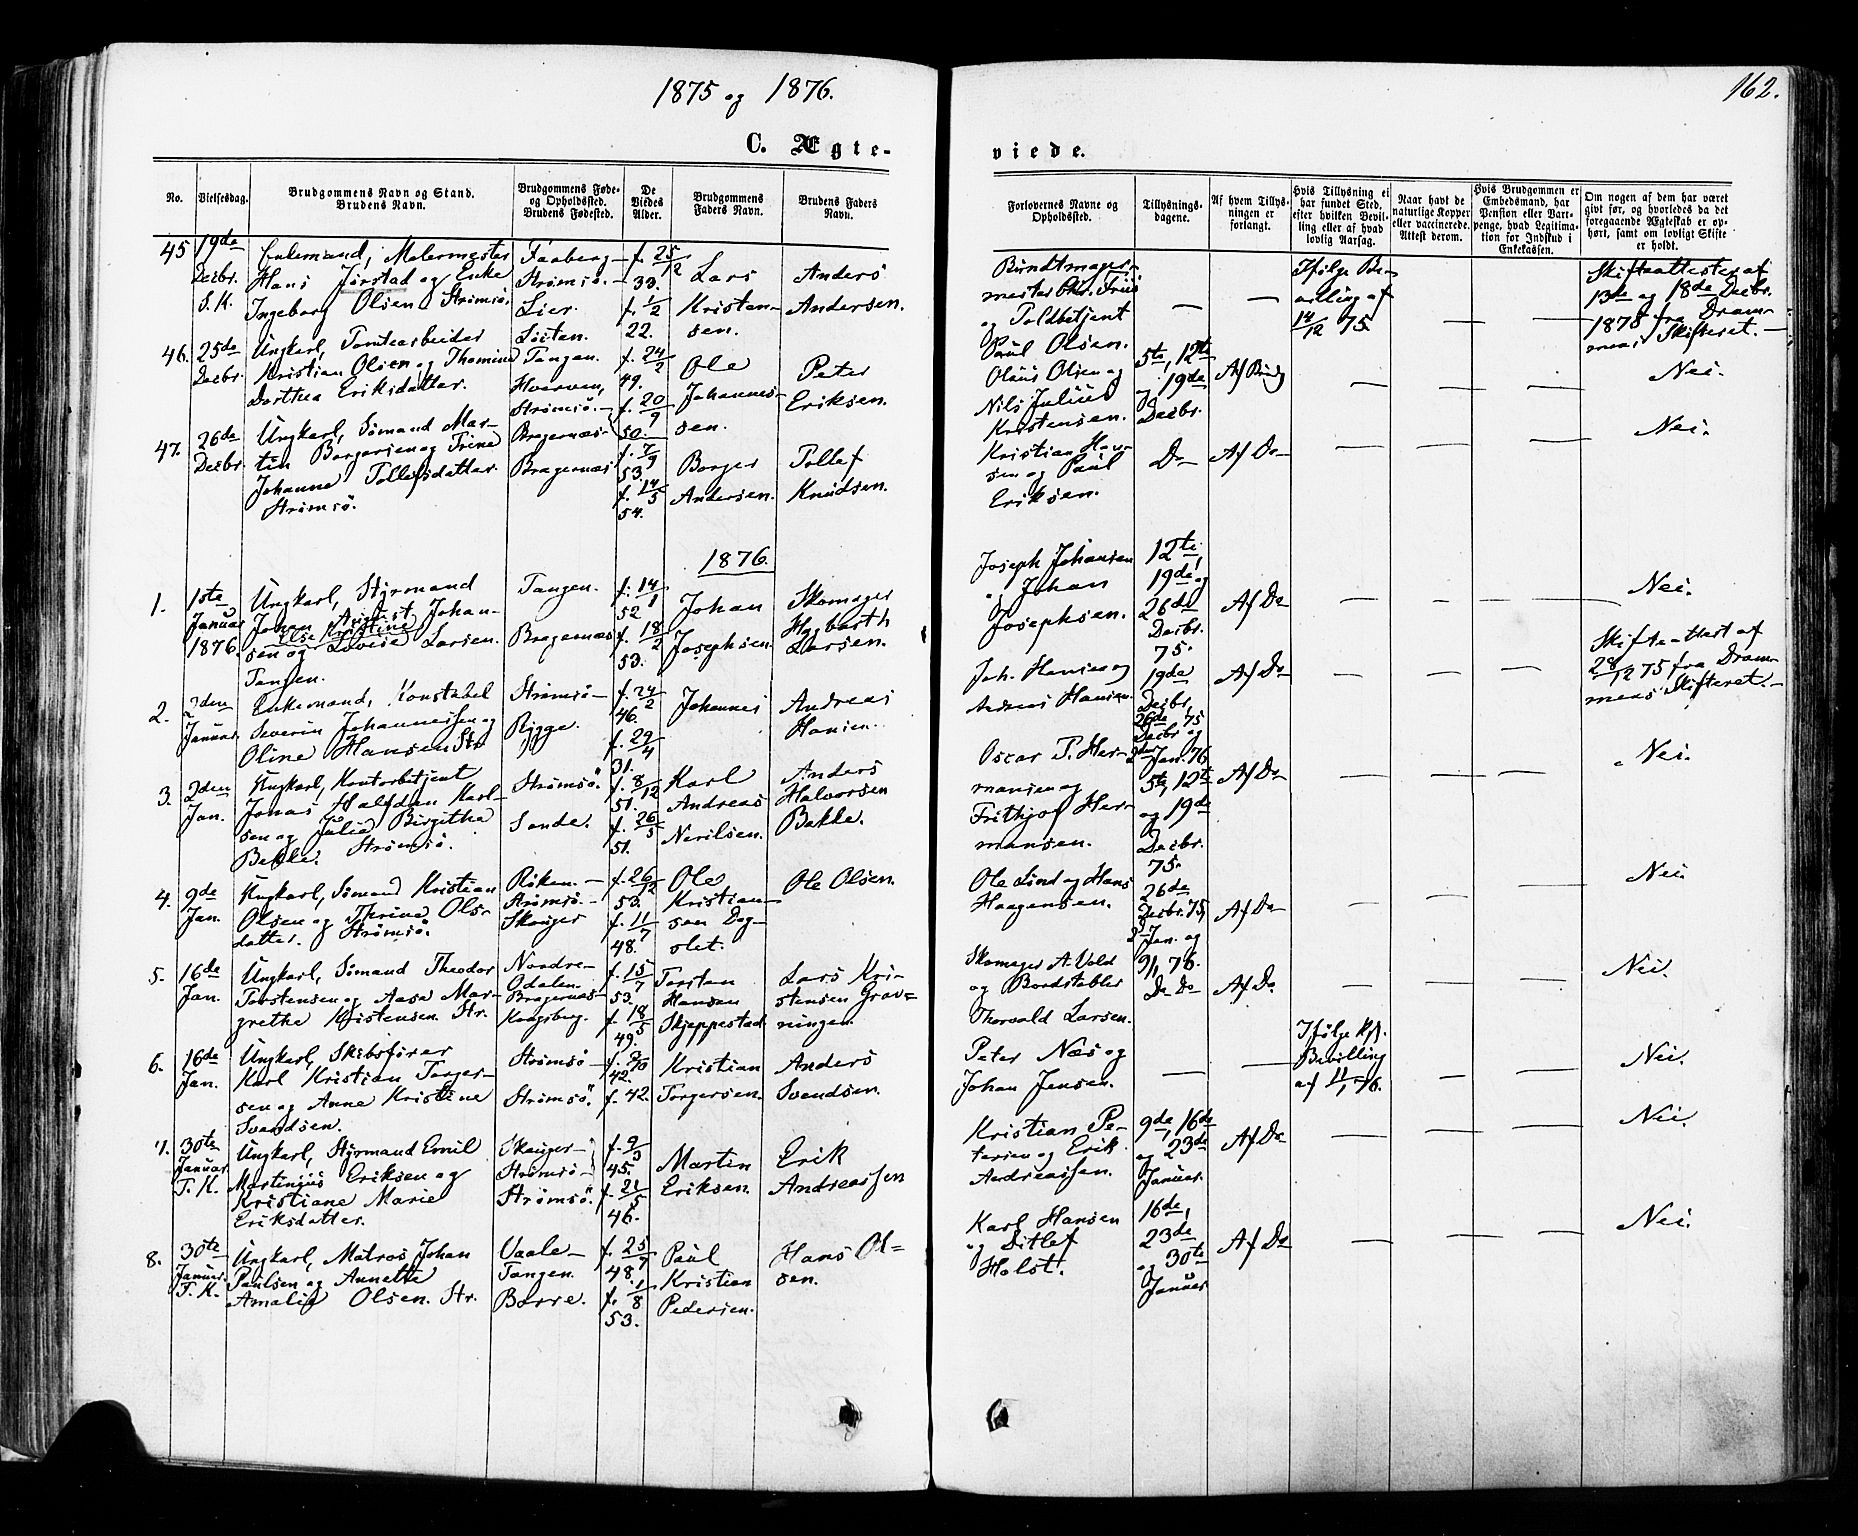 1875 og 1876.
162.
C. Ægte-
viede.
No.
Vielsesdag.
Brudgommens Navn og Stand.
Brudens Navn.
Brudgommens Føde-
og Opholdsted.
Brudens Fødested.
De
Viedes
Alder.
Brudgommens
Faders Navn.
Brudens Faders
Navn.
Forlovernes Navne og
Opholdsted.
Tillysnings-
dagene.
Af hvem Tillys-
ningen er
forlangt.
Hvis Tillysning ei
har fundet Sted,
efter hvilken Bevil-
ling eller af hvad
lovlig Aarsag.
Naar havt de
naturlige Kopper
eller vaccinerede.
Attest derom.
Hvis Brudgommen er
Embedsmand, har
Pension eller Vart-
penge, hvad Legitima-
tion for Indskud i
Enkekassen.
Om nogen af dem har været
givt før, og hvorledes da det
foregaaende Ægteskab er op-
hørt, samt om lovligt Skifte
er holdt.
45
19de
Decbr.
S. K.
Enkemand, Malermester
Hans Jørstad og Enke
Ingeborg Olsen Strömsö
Faaberg -
Strömsö. -
Lier.
f. 25/12
33.
f. 1/2
22.
Lars
Kristen-
sen.
Anders
Andersen.
Bundtmager-
mester Chr. Friis
og Toldbetjent
Paul Olsen.
—
—
Ifølge Be-
villing af
14/12 75.
—
—
Skifteattester af
13de og 18de Decbr.
1875 fra Dram-
mens Skifteret. -
46.
25de
Decbr.
Ungkarl, Tomtearbeider
Kristian Olsen og Thomine
Dorthea Eriksdatter.
Löiten.
Tangen.
Hverven,
Strömsö. -
f. 24/2
49.
f. 20/9
50.
Ole
Johannes-
sen.
Peter
Eriksen.
Olaus Olsen og
Nils Julius
Kristensen.
5te, 12te
og 19de
Decbr.
Af Brudg
—
—
—
Nei.
47.
26de
Decbr.
Ungkarl, Sömand Mar-
tin Borgersen og Trine
Johanne Tollefsdatter
Strömsö.
Bragernæs
Bragernæs
f. 7/9
53.
f. 14/5
54.
Borger
Andersen.
Tollef
Knudsen.
Kristian Han-
sen og Paul
Eriksen.
Do
Af Do
—
—
—
Nei.
1876.
1.
1ste
Januar
1876.
Ungkarl, Styrmand
Johan August Johan-
Else Kristine
sen og Lovise Larsen.
Tangen.
Tangen.
Bragernæs
f. 14/1
52
f. 18/2
53.
Johan
Josephsen.
Skomager
Hagbarth
Larsen.
Joseph Johansen
og Johan
Josephsen.
12te,
19de og
26de
Decbr.
75.
Af Do
—
—
—
Nei.
2.
2den
Januar
Enkemand, Konstabel
Severin Johannessen og
Oline Hansen Str.
Strömsö -
Rygge.
f. 24/2
46.
f. 29/4
31.
Johannes
Andreas
Hansen.
Joh. Hansen og
Andreas Hansen.
19de
Decbr,
26de
Decbr 75 og
2den Jan. 76
Af Do
—
—
—
Skifteattest af
28/12 75 fra Dram-
mens Skifteret. -
3.
2den
Jan.
Ungkarl, Kontorbetjent
Jonas Halfdan Karl-
sen og Julie Birgitha
Bakke. Strömsö.
Strömsö.
Sande.
f. 8/12
51.
f. 26/3
51.
Karl
Andreas
Anders
Halvorsen
Bakke.
Oscar P. Her-
mansen og
Frithjof Her-
mansen.
5te, 12te
og 19de
Decbr.
75.
Af Do
—
—
—
Nei.
4.
9de
Jan.
Ungkarl, Sömand Kristian
Olsen og Thrine Ols-
datter. Strömsö.
Röken. -
Strömsö. -
Skouger
f. 26/12
53.
f. 11/7
48.
Ole
Kristian-
sen Dag-
slet.
Ole Olsen.
Ole Lind og Hans
Haagensen.
26de
Decbr. 75,
2den Jan. og
9/1 76.
Af Do
—
—
—
Nei.
5.
16de
Jan.
Ungkarl, Sömand Theodor
Torstensen og Aasa Mar-
grethe Kristensen Str.
Nordre -
Odalen.
Bragernæs -
Kongsberg.
f. 15/7
53.
f. 18/5
49.
Torsten
Hansen
Skjeppestad
Lars Kri-
stensen Grav-
ningen.
Skomager A. Vold
og Bordstabler
Thorvald Larsen.
Do Do
Af Do
—
—
—
Nei.
6.
16de
Jan.
Ungkarl, Skibsförer
Karl Kristian Torger-
sen og Anne Kristine
Svendsen.
Strömsö -
Strömsö.
42.
f. 42.
Kristian
Torgersen.
Anders
Svendsen.
Peter Næs og
Johan Jensen.
—
—
Ifølge Kgl.
Bevilling
af 11/1 76.
—
—
Nei.
7.
30te
Januar
T. K.
Ungkarl, Styrmand Emil
Martinius Eriksen og
Kristiane Marie
Eriksdatter.
Skouger -
Strömsö -
Strömsö.
f. 9/3
45.
f. 21/5
46.
Martin
Eriksen.
Erik
Andreassen
Kristian Pe-
tersen og Erik
Andreassen.
9de, 16de
og 23de
Januar.
Af Do
—
—
—
Nei.
8.
30te
Januar
T. K.
Ungkarl, Matros Johan
Paulsen og Annette
Amalie Olsen. Str.
Vaale -
Tangen.
Borre.
f. 25/7
48.
f. 1/8
53.
Paul
Kristian
Pedersen.
Hans Ol-
sen.
Karl Hansen
og Ditlef
Holst.
16de,
23de
og 30te
Januar
Af Do
—
—
—
Nei.